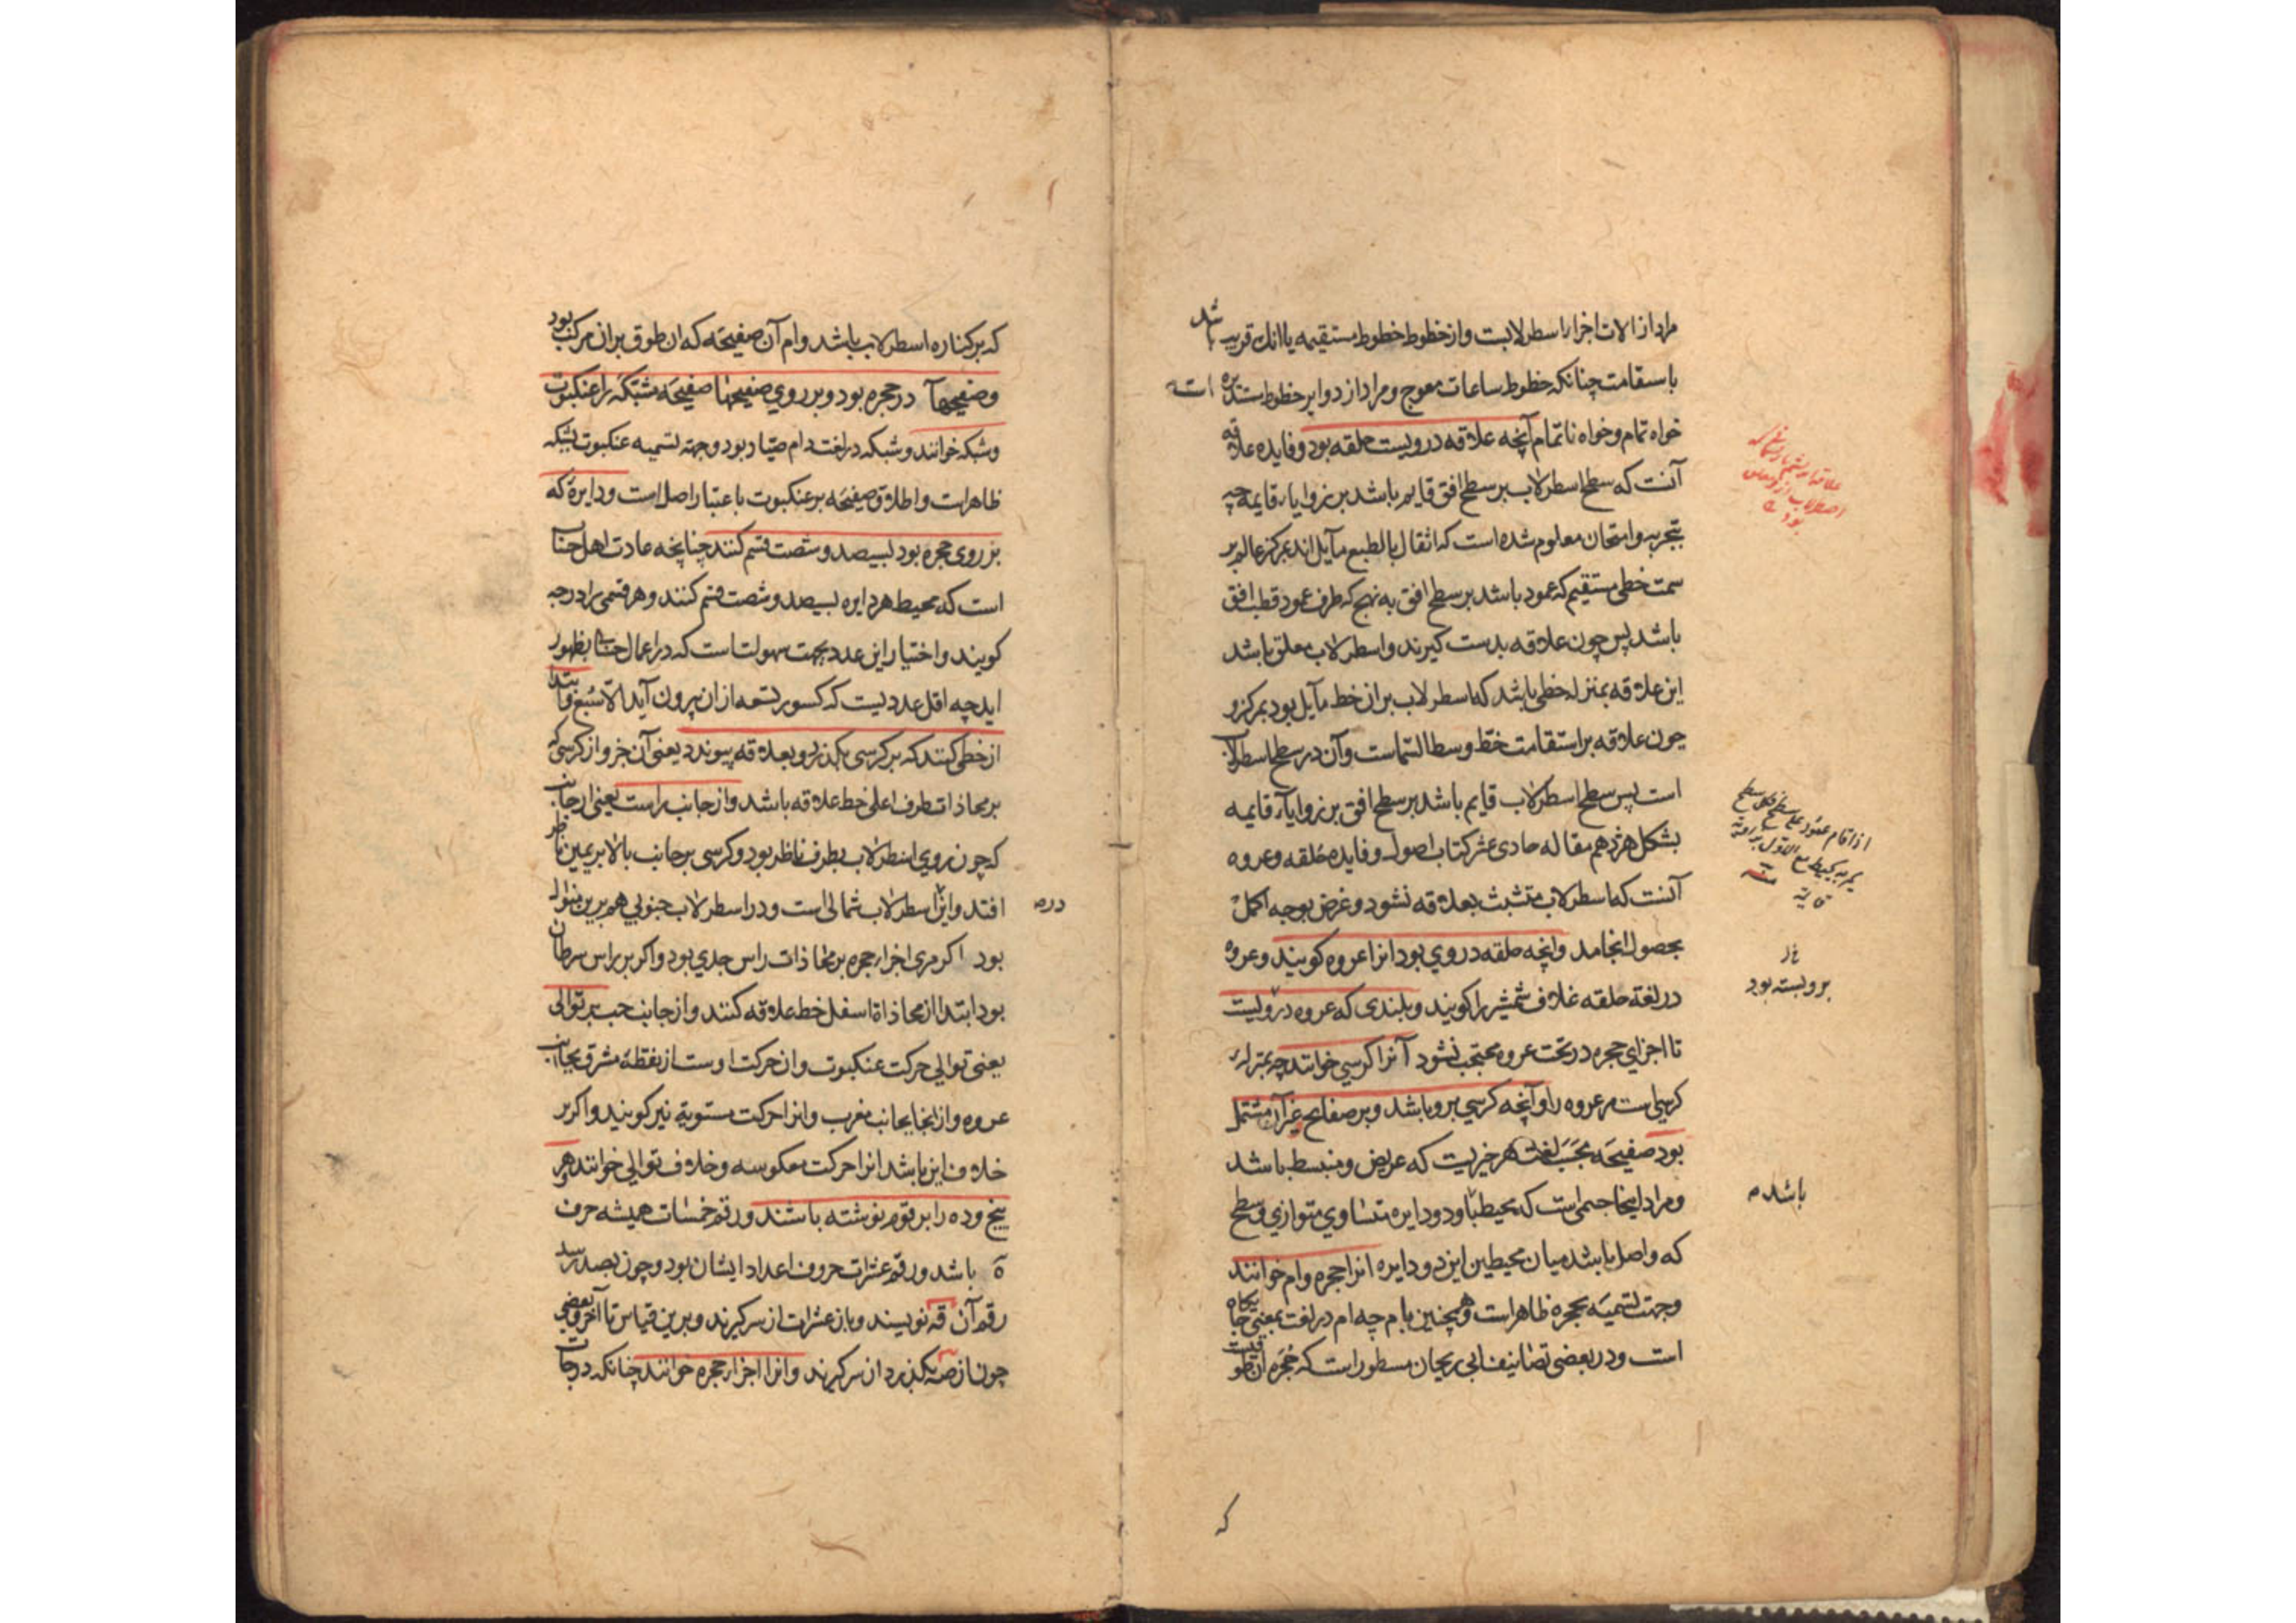 مراد از الات اجزا اسطرلابست و از خطوط خطوط مستقیمه یا انك قریب باشد
باستقامت چنانکه خطوط ساعات معوج و مراد از دوایر خطوط مستدیره است
خواه تمام و خواه ناتمام آنچه علاقه درویست حلقه بود و فایده علاقه
آنست که سطح اسطرلاب بر سطح افق قایم باشد بر زوایاء قایمه چه
بتجربه و امتحان معلوم شده است که اثقال بالطبع مایل اند بمرکز عالم بر
سمت خطی مستقیم که عمود باشد بر سطح افق به نهج که طرف عمود قطب افق
باشد پس چون علاقه بدست کیرند و اسطرلاب معلق باشد
این علاقه بمنزله خطی باشد که اسطرلاب بران خط مایل بود بمرکز و
چون علاقه بر استقامت خط وسط السماست و آن در سطح اسطرلاب
است پس سطح اسطرلاب قایم باشد بر سطح افق بر زوایاء قایمه
بشکل هژدهم مقاله حادی عشر کتاب اصول و فایده حلقه و عروه
آنست که اسطرلاب متشبث بعلاقه نشود و غرض بوجه اکمل
بحصول انجامد وانچه حلقه در وی بود انرا عروه کویند و عروه
در لغة حلقه غلاف شمشیر را کویند و بلندی که عروه درویست
تا اجزای حجره در تحت عروه محتجب نشود آنرا کرسی خوانند چه بمنزله
کرسی است مر عروه را و آنچه کرسی برو باشد و بر صفایح غیر آن مشتمل
بود صفیحه بحسب لغت هر چیزیست که عریض و منبسط باشد
و مراد اینجا جسمی است که محیط باو دو دایره متساوی متوازی و سطح
که واصل باشد میان محیطین این دو دایره انرا حجره و ام خوانند
وجهت تسمیه بحجره ظاهراست و همچنین بام چه ام در لغت بمعنی جایکاه
است و در بعضی تصانیف ابی ریحان مسطور است که حجره آن طوقیست
برو بسته بود
باشد
که
که بر کناره اسطرلاب باشد و ام آن صفیحه که ان طوق بران مرکب بود
و صفیحها در حجره بود و بر روی صفیحها صفیحه مشبکه را عنکبوت
و شبکه خوانند و شبکه در لغت دام صیاد بود و جهة تسمیه عنکبوت بشبکه
ظاهرات و اطلاق صفیحه بر عنکبوت باعتبار اصل است و دایره که
بر روی حجره بود بسیصد و شصت قسم کنند چنانچه عادت اهل حساب
است که محیط هر دایره بسیصد و شصت قسم کنند و هر قسمی را درجه
کویند و اختیار این عدد بجهت سهولتست که در اعمال حساب بظهور
اید چه اقل عددیست که کسور تسعه ازان بیرون آید الا سبع و ابتدا
از خطی کنند که بر کرسی بکذرد و بعلاقه پیوندد یعنی آن جزو از کرسی که
بر محاذات طرف اعلی خط علاقه باشد و از جانب راست یعنی از جانب
که چون روی اسطرلاب بطرف ناظر بود و کرسی بر جانب بالا بر یمین ناظر
افتد و این در اسطرلاب شمالی است و در اسطرلاب جنوبی هم برین منوال
بود اکر مری اجزاء حجره بر محاذات راس جدی بود و اکر بر راس سرطان
بود ابتدا از محاذاة اسفل خط علاقه کنند و از جانب چپ بر توالی
یعنی توالی حرکت عنکبوت و ان حرکت اوست از نقطه مشرق بجانب
عروه و از انجا بجانب مغرب و انرا حرکت مستویة نیز کویند و اکر بر
خلاف این باشد انرا حرکت معکوسه و خلاف توالی خوانند هر
پنج و ده را برقوم نوشته باشند و رقم خمسات همیشه حرف
ه باشد و رقم عشرات حروف اعداد ایشان بود و چون بصد رسد
رقم آن قه نویسند و باز عشرات از سر کیرند و برین قیاس تا آخر و بعضی
چون از صه بکذرد از سر کیرند و انرا اجزاء حجره خوانند چنانکه درجات